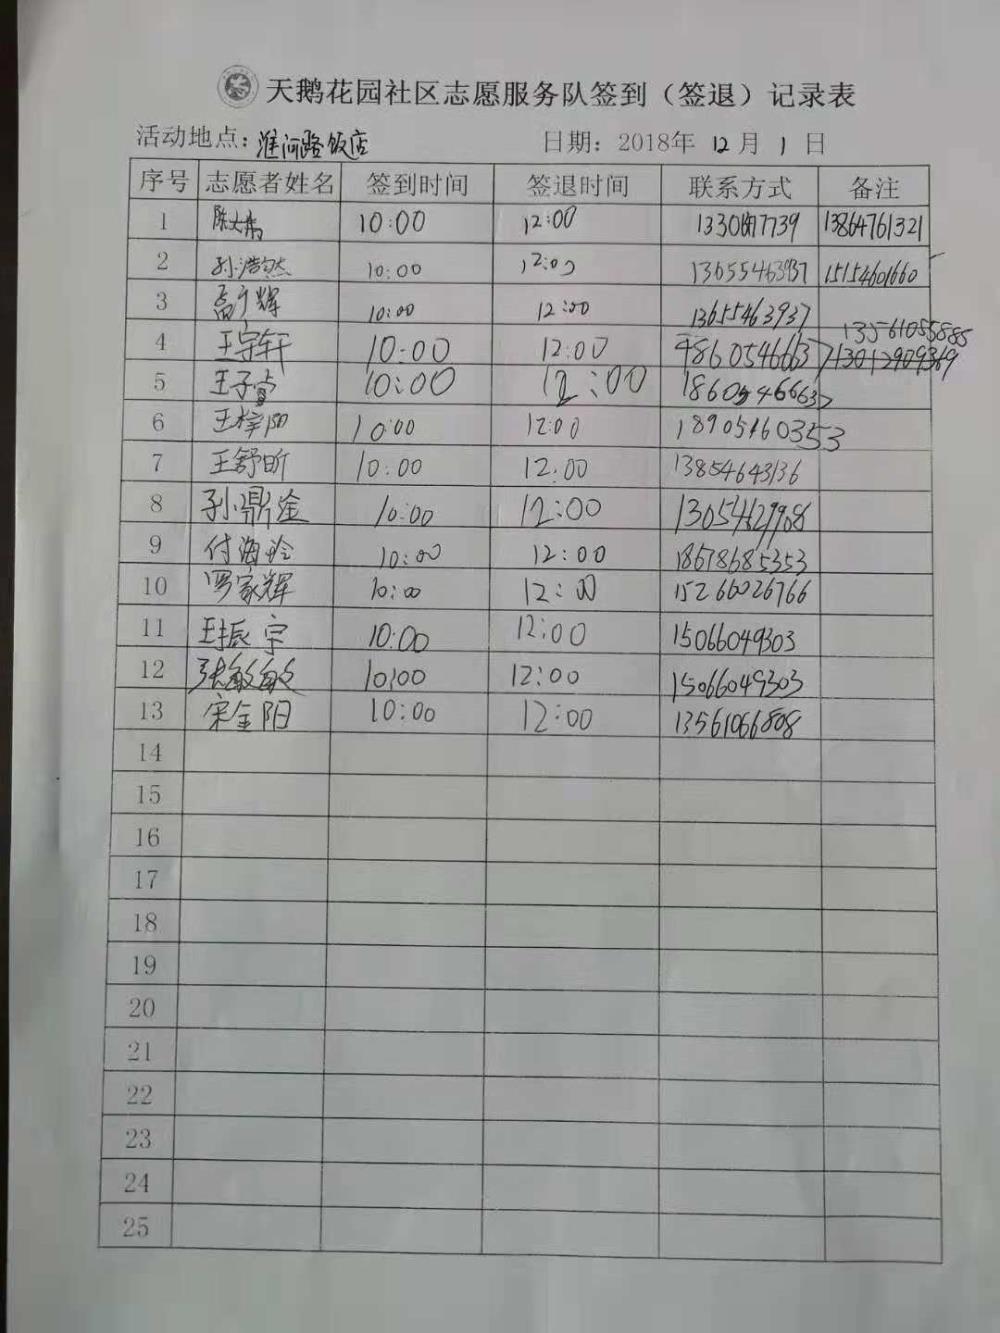 天鹅花园社区志愿服务队签到（签退）记录表
活动地点：淮河路饭店 日期：2018年 12 月 1 日
序号 志愿者姓名 签到时间 签退时间 联系方式 备注
1 10:00 12:00 13864761321
2 孙浩然 10:00 12:00 13655463937 15154601660
3 高广辉 10:00 12:00 13655463937 13561055885
4 王宇轩 10:00 12:00 18605466637 13012909369
5 王子萱 10:00 12:00 18605466637
6 王梓阳 10:00 12:00 18905460353
7 王舒昕 10:00 12:00 13854643136
8 孙鼎淦 10:00 12:00 13054629908
9 付海玲 10:00 12:00 18678685353
10 罗家辉 10:00 12:00 15266026766
11 王振宇 10:00 12:00 15066049303
12 张敏敏 10:00 12:00 15066049303
13 宋金阳 10:00 12:00 13561066808
14
15
16
17
18
19
20
21
22
23
24
25